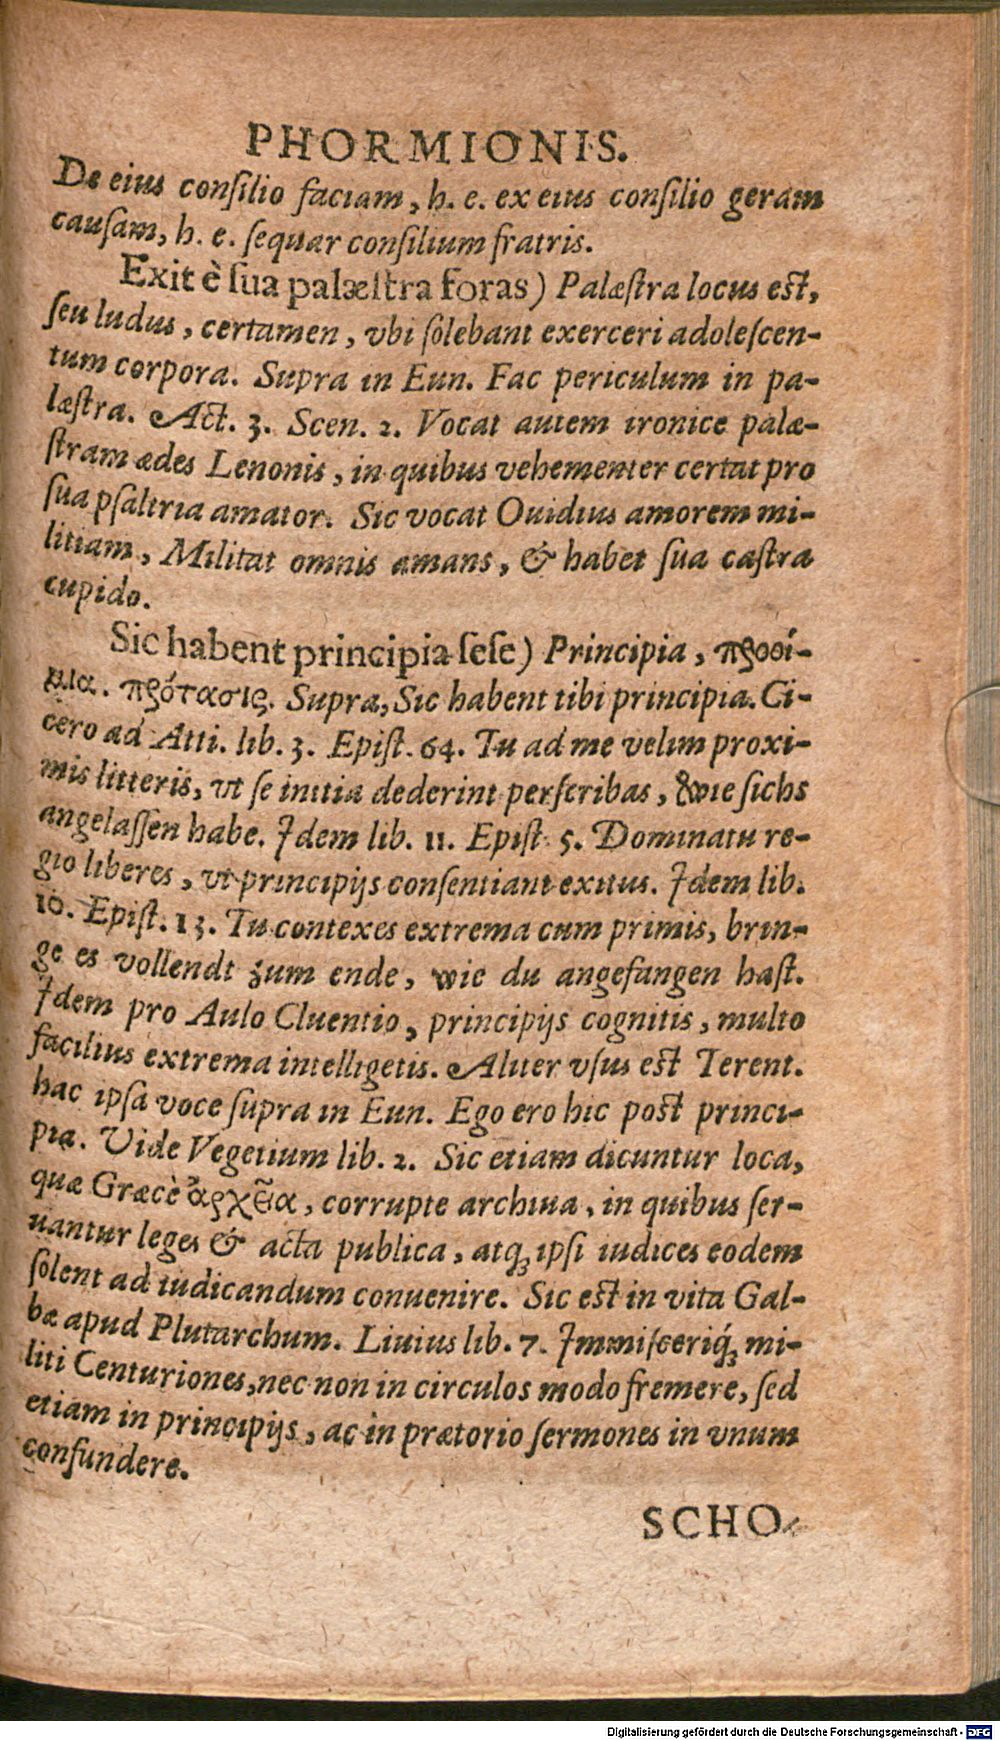 PHORMIONIS.
De eius consilio faciam, h. e. ex eius consilio geram
causam, h. e. sequar consilium fratris.
Exit è sua palæstra foras) Palæstra locus est,
seu ludus, certamen, vbi solebant exerceri adolescen-
tum corpora. Supra in Eun. Fac periculum in pa-
læstra. Act. 3. Scen. 2. Vocat autem ironice palæ-
stram ædes Lenonis, in quibus vehementer certat pro
sua psaltria amator. Sic vocat Ouidius amorem mi-
litiam, Militat omnis amans, & habet sua castra
cupido.
Sic habent principia sese) Principia, προοί-
μια. πρότασις. Supra, Sic habent tibi principia. Ci-
cero ad Atti. lib. 3. Epist. 64. Tu ad me velim proxi-
mis litteris, vt se initia dederint perscribas, wie sichs
angelassen habe. Idem lib. 11. Epist. 5. Dominatu re-
gio liberes, vt principijs consentiant exitus. Idem lib.
10. Epist. 13. Tu contexes extrema cum primis, brin-
ge es vollendt zum ende, wie du angefangen hast.
Idem pro Aulo Cluentio, principijs cognitis, multo
facilius extrema intelligetis. Aliter vsus est Terent.
hac ipsa voce supra in Eun. Ego ero hic post princi-
pia. Vide Vegetium lib. 2. Sic etiam dicuntur loca,
quæ Græcè ἀρχεῖα, corrupte archiua, in quibus ser-
uantur leges & acta publica, atq; ipsi iudices eodem
solent ad iudicandum conuenire. Sic est in vita Gal-
bæ apud Plutarchum. Liuius lib. 7. Immisceriq́; mi-
liti Centuriones, nec non in circulos modo fremere, sed
etiam in principijs, ac in prætorio sermones in vnum
confundere.
SCHO-
Digitalisierung gefördert durch die Deutsche Forschungsgemeinschaft - DFG